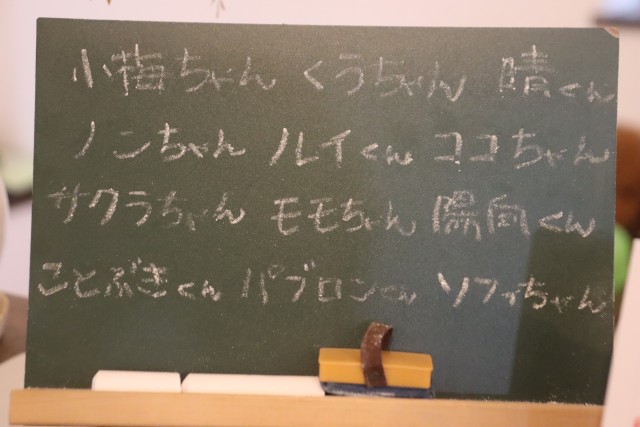 小梅ちゃん くうちゃん 晴くん
ノンちゃん ルイくん ココちゃん
サクラちゃん モモちゃん 陽向くん
ことぶきくん パブロンくん ソフィちゃん